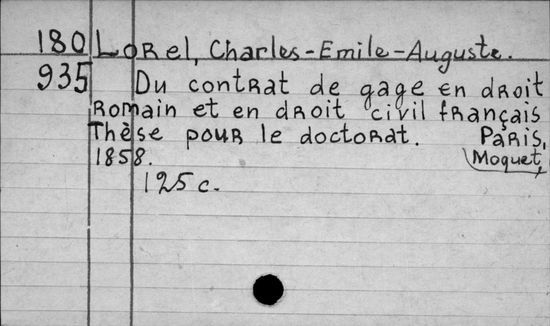 180 Lorel, Charles-Emile-Auguste.
935 Du contrat de gage en droit
Romain et en droit civil français
Thèse pour le doctorat. Paris,
1858. Moquet,
125 c.